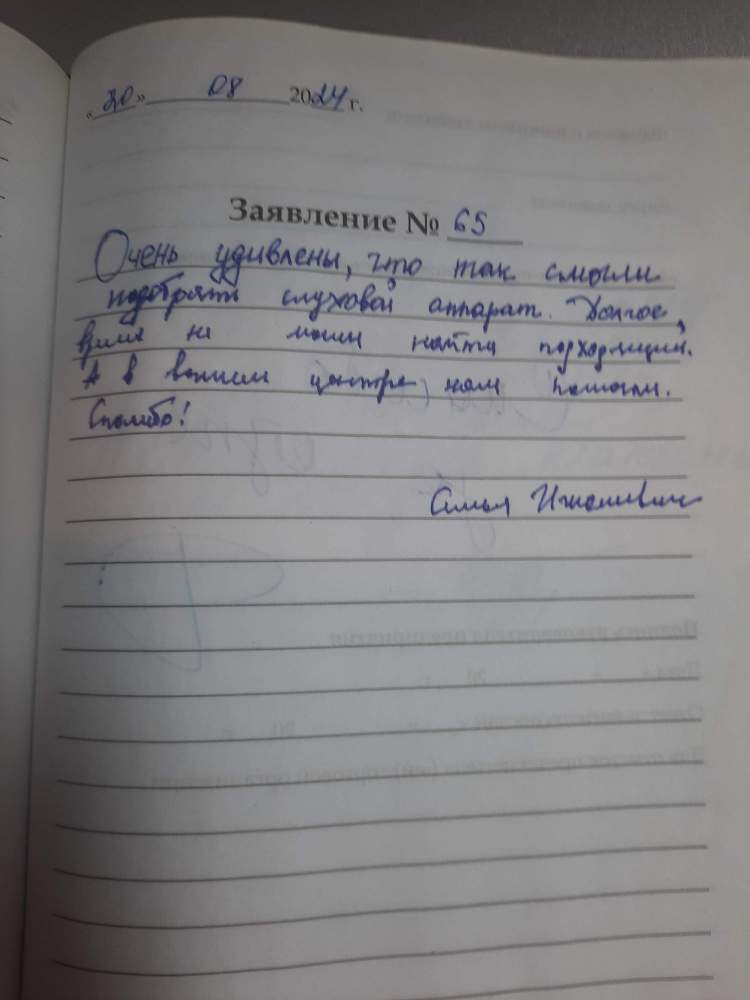 «20» 08 2024 г.
Заявление № 65
Очень удивлены, что так смогли
подобрать слуховой аппарат. Долгое
время не могли найти подходящий.
А в вашем центре нам помогли.
Спасибо!
Семья